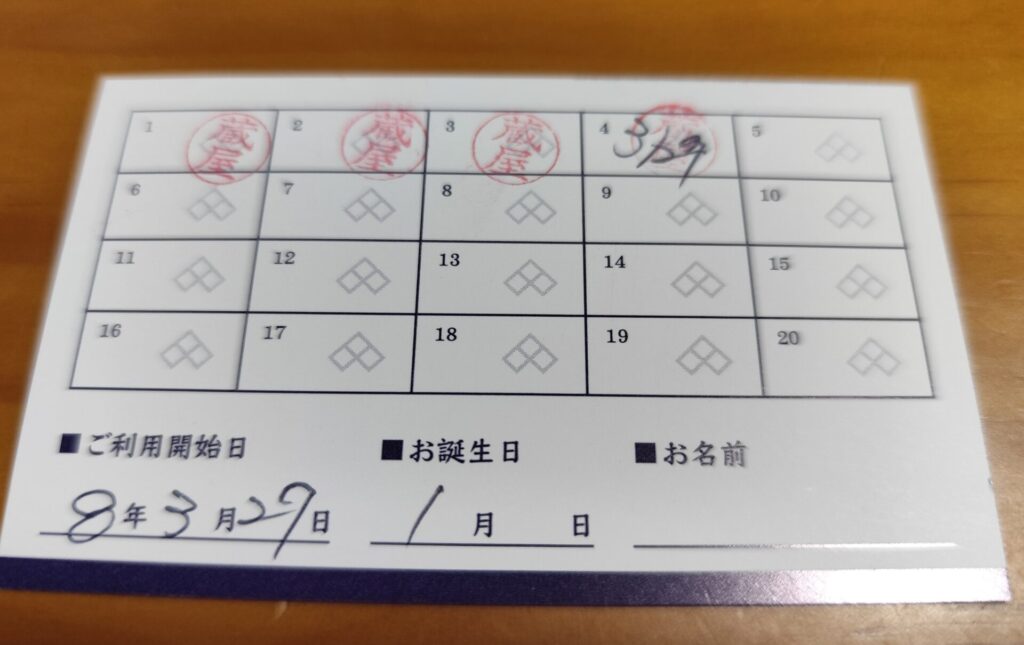 1 蔵屋 2 蔵屋 3 蔵屋 4 蔵 3/27 5
6 7 8 9 10
11 12 13 14 15
16 17 18 19 20
■ご利用開始日 ■お誕生日 ■お名前
8年3月27日 1月 日